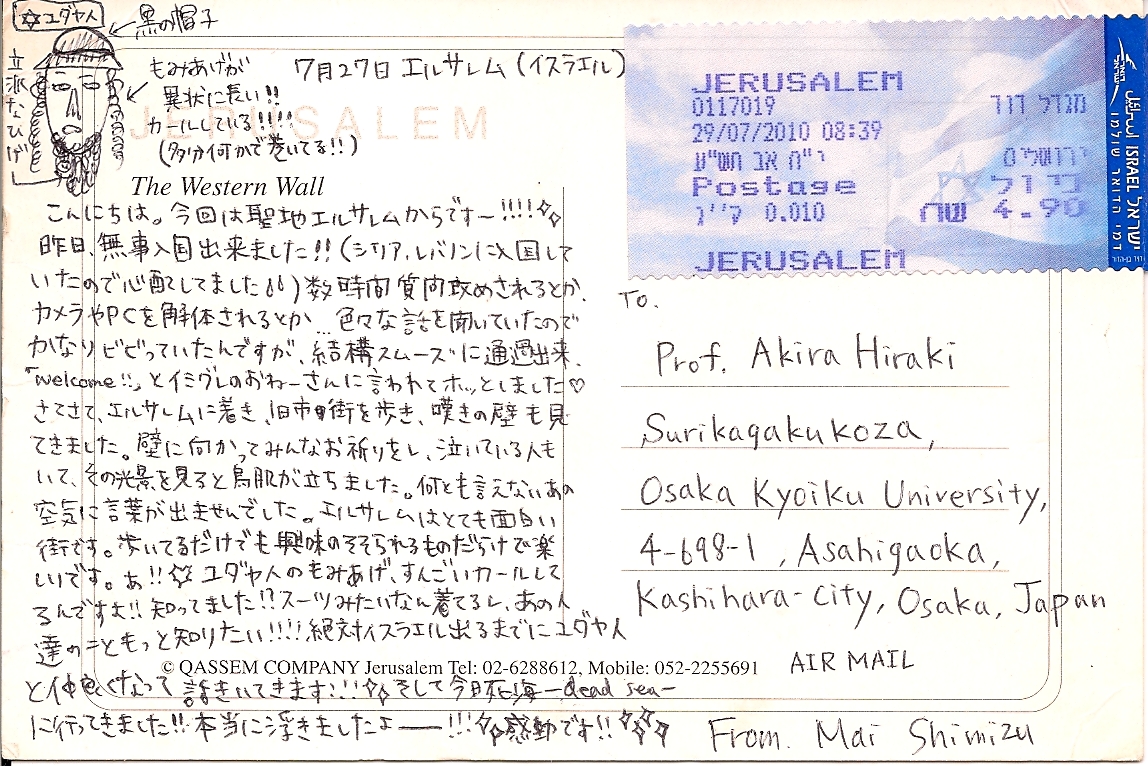 ✡ユダヤ人
←黒の帽子
立派なひげ
もみあげが
異状に長い!!
カールしている!!!!
(多分何かで巻いてる!!)
7月27日 エルサレム (イスラエル)
JERUSALEM
The Western Wall
こんにちは。今回は聖地エルサレムからです〜!!!!
昨日、無事入国出来ました!!(シリア,レバノンに入国して
いたので心配してました)数時間質問攻めされるとか、
カメラやPCを解体されるとか…色々な話を聞いていたので
かなりビビっていたんですが、結構スムーズに通過出来、
「welcome!!」とイミグレのおねーさんに言われてホッとしました♡
さてさて、エルサレムに着き、旧市街を歩き、嘆きの壁も見
てきました。壁に向かってみんなお祈りをし、泣いている人も
いて、その光景を見ると鳥肌が立ちました。何とも言えないあの
空気に言葉が出ませんでした。エルサレムはとても面白い
街です。歩いてるだけでも興味のそそられるものだらけで楽
しいです。あ!!✡ ユダヤ人のもみあげ、すんごいカールして
るんですよ!! 知ってました!?スーツみたいなん着てるし、あの人
達のこともっと知りたい!!!!絶対イスラエル出るまでにユダヤ人
© QASSEM COMPANY Jerusalem Tel: 02-6288612, Mobile: 052-2255691
と仲良くなって 話きいてきます!!! そして今日死海 -dead sea-
に行ってきました!! 本当に浮きましたよ——!!! 感動です!!
JERUSALEM
0117019
מגדל דוד
29/07/2010 08:39
ירושלים
י"ח אב תש"ע
Postage
בי ול
ק"ג 0.010
שח 4.90
JERUSALEM
ISRAEL ישראל
דמי הדואר שולמו
TO.
Prof. Akira Hiraki
Surikagakukoza,
Osaka Kyoiku University,
4-698-1, Asahigaoka,
Kashihara-city, Osaka, Japan
AIR MAIL
From. Mai Shimizu